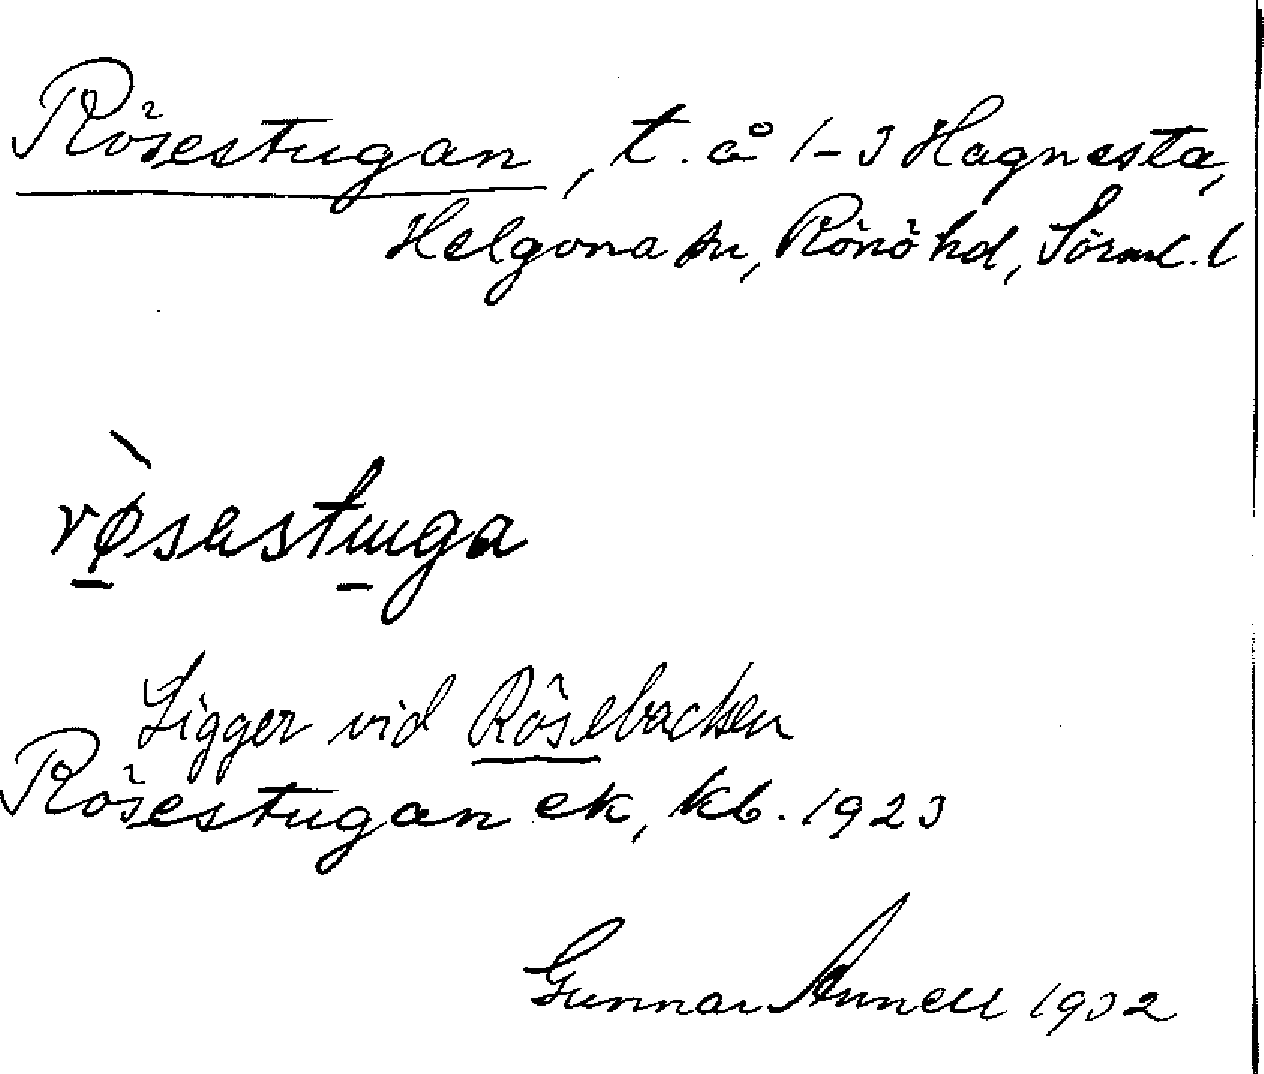 Rösestugan, t. å 1-3 Hagnesta,
Helgona sn, Rönö hd, Sörml. l
rø̀sastuga
Ligger vid Rösebacken
Rösestugan ek, kb. 1923
Gunnar Annell 1932